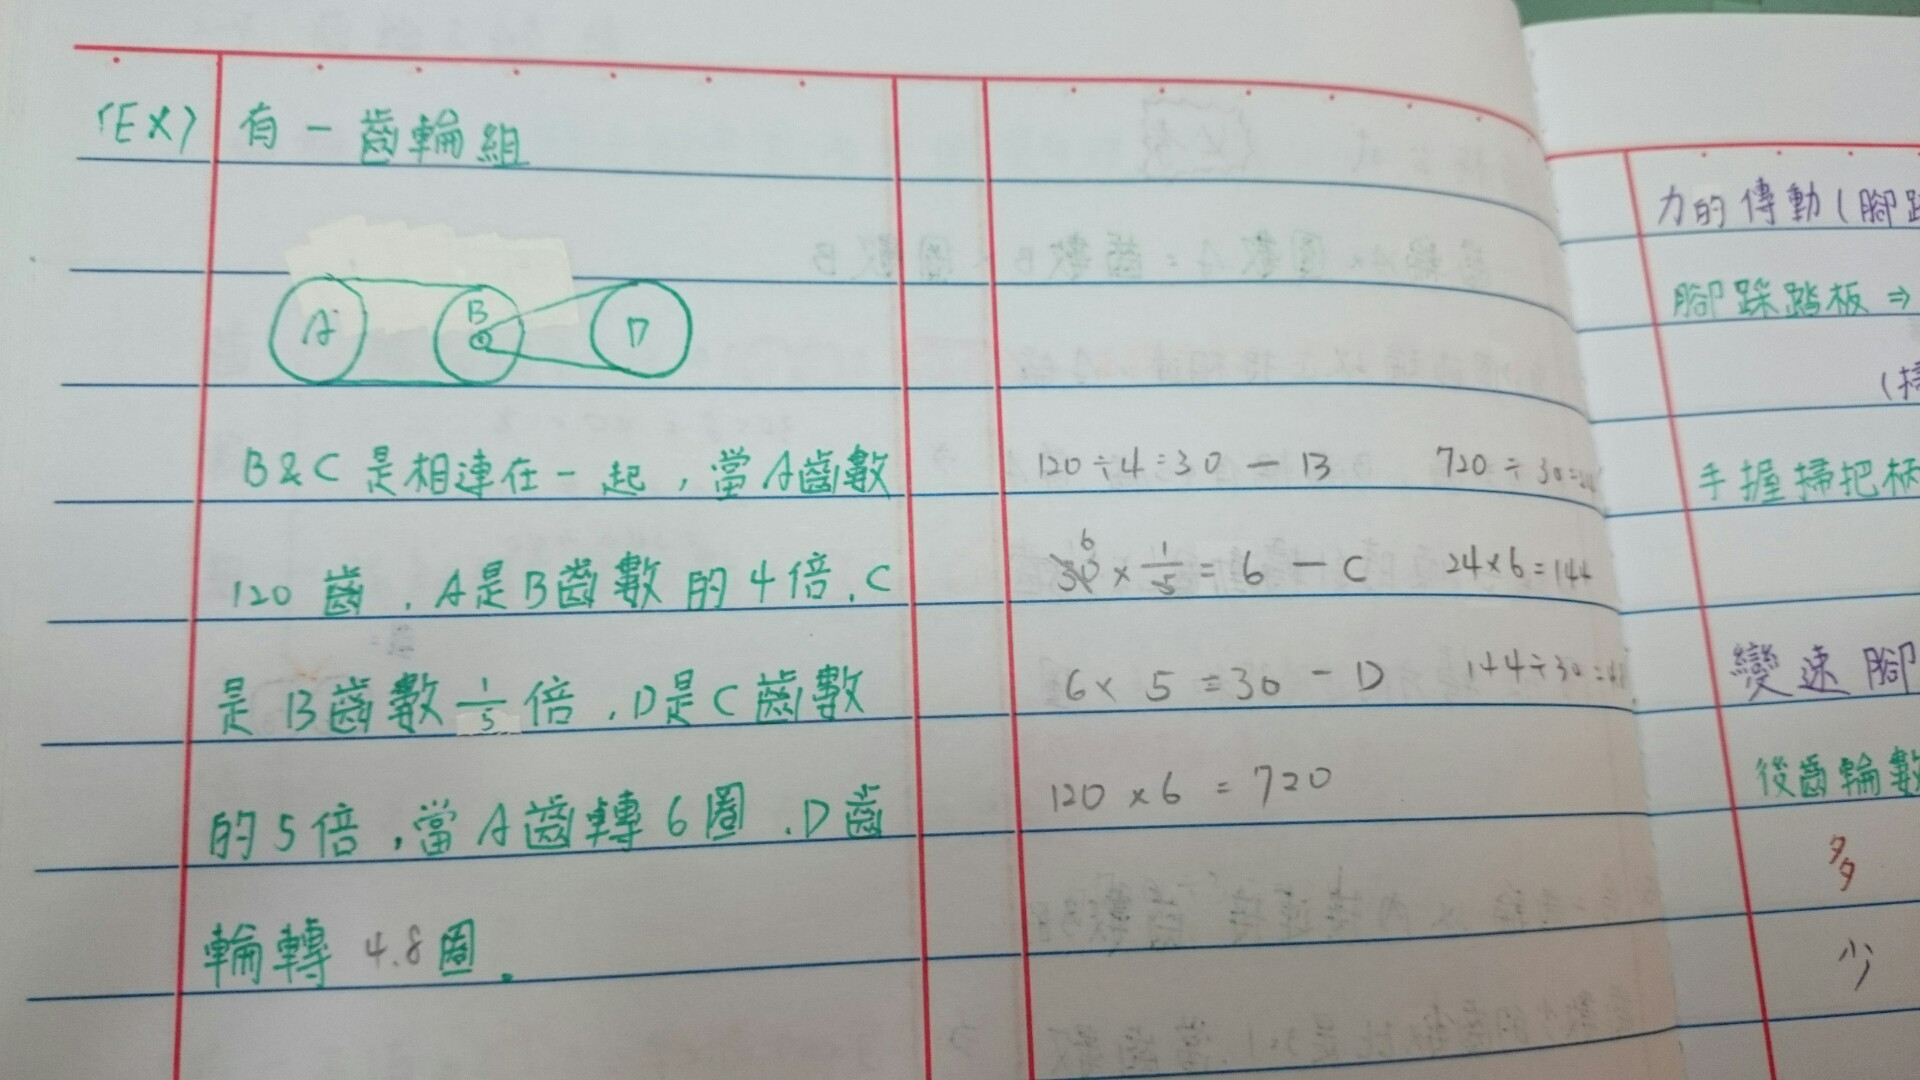 (EX) 有一齒輪組
A B D
B&C是相連在一起,當A齒數
120齒,A是B齒數的4倍,C
是B齒數1/5倍,D是C齒數
的5倍,當A齒轉6圈,D齒
輪轉4.8圈。
120÷4=30 — B
30 6 × 1/5 = 6 — C
6×5=30 — D
120×6=720
720÷30=24
24×6=144
144÷30=
力的傳動(腳
腳踩踏板⇒
手握掃把柄
變速腳
後齒輪數
多
少